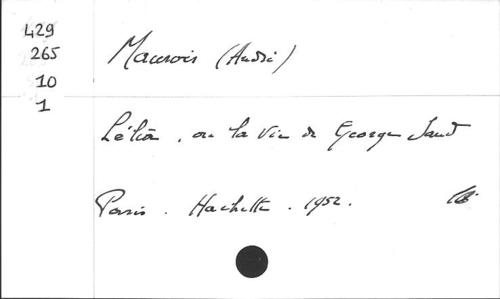 429
265
10
1
Maurois (André)
Lélia, ou la Vie de George Sand
Paris. Hachette. 1952.